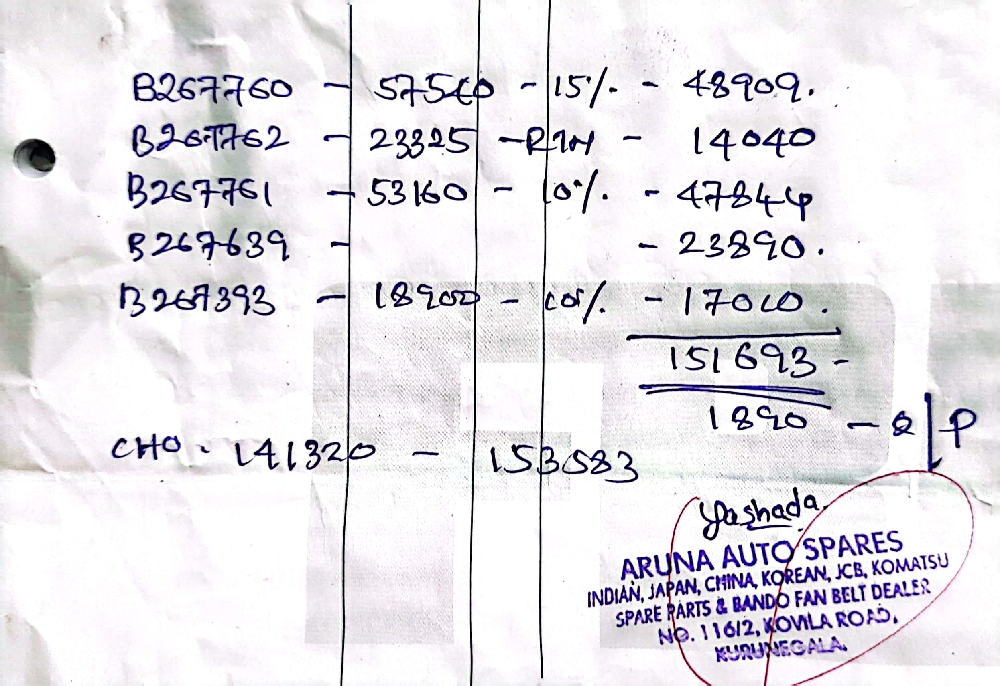 B267760 - 57540 - 15% - 48909.
B267762 - 23325 - RTN - 14040
B267761 - 53160 - 10% - 47844
B267639 - - 23890.
B267393 - 18900 - 10% - 17010.
151693 -
1890 - 2 | P
CHO. 141320 - 153583
Yashada.
ARUNA AUTO SPARES
INDIAN, JAPAN, CHINA, KOREAN, JCB, KOMATSU
SPARE PARTS & BANDO FAN BELT DEALER
NO. 116/2, KOVILA ROAD,
KURUNEGALA.